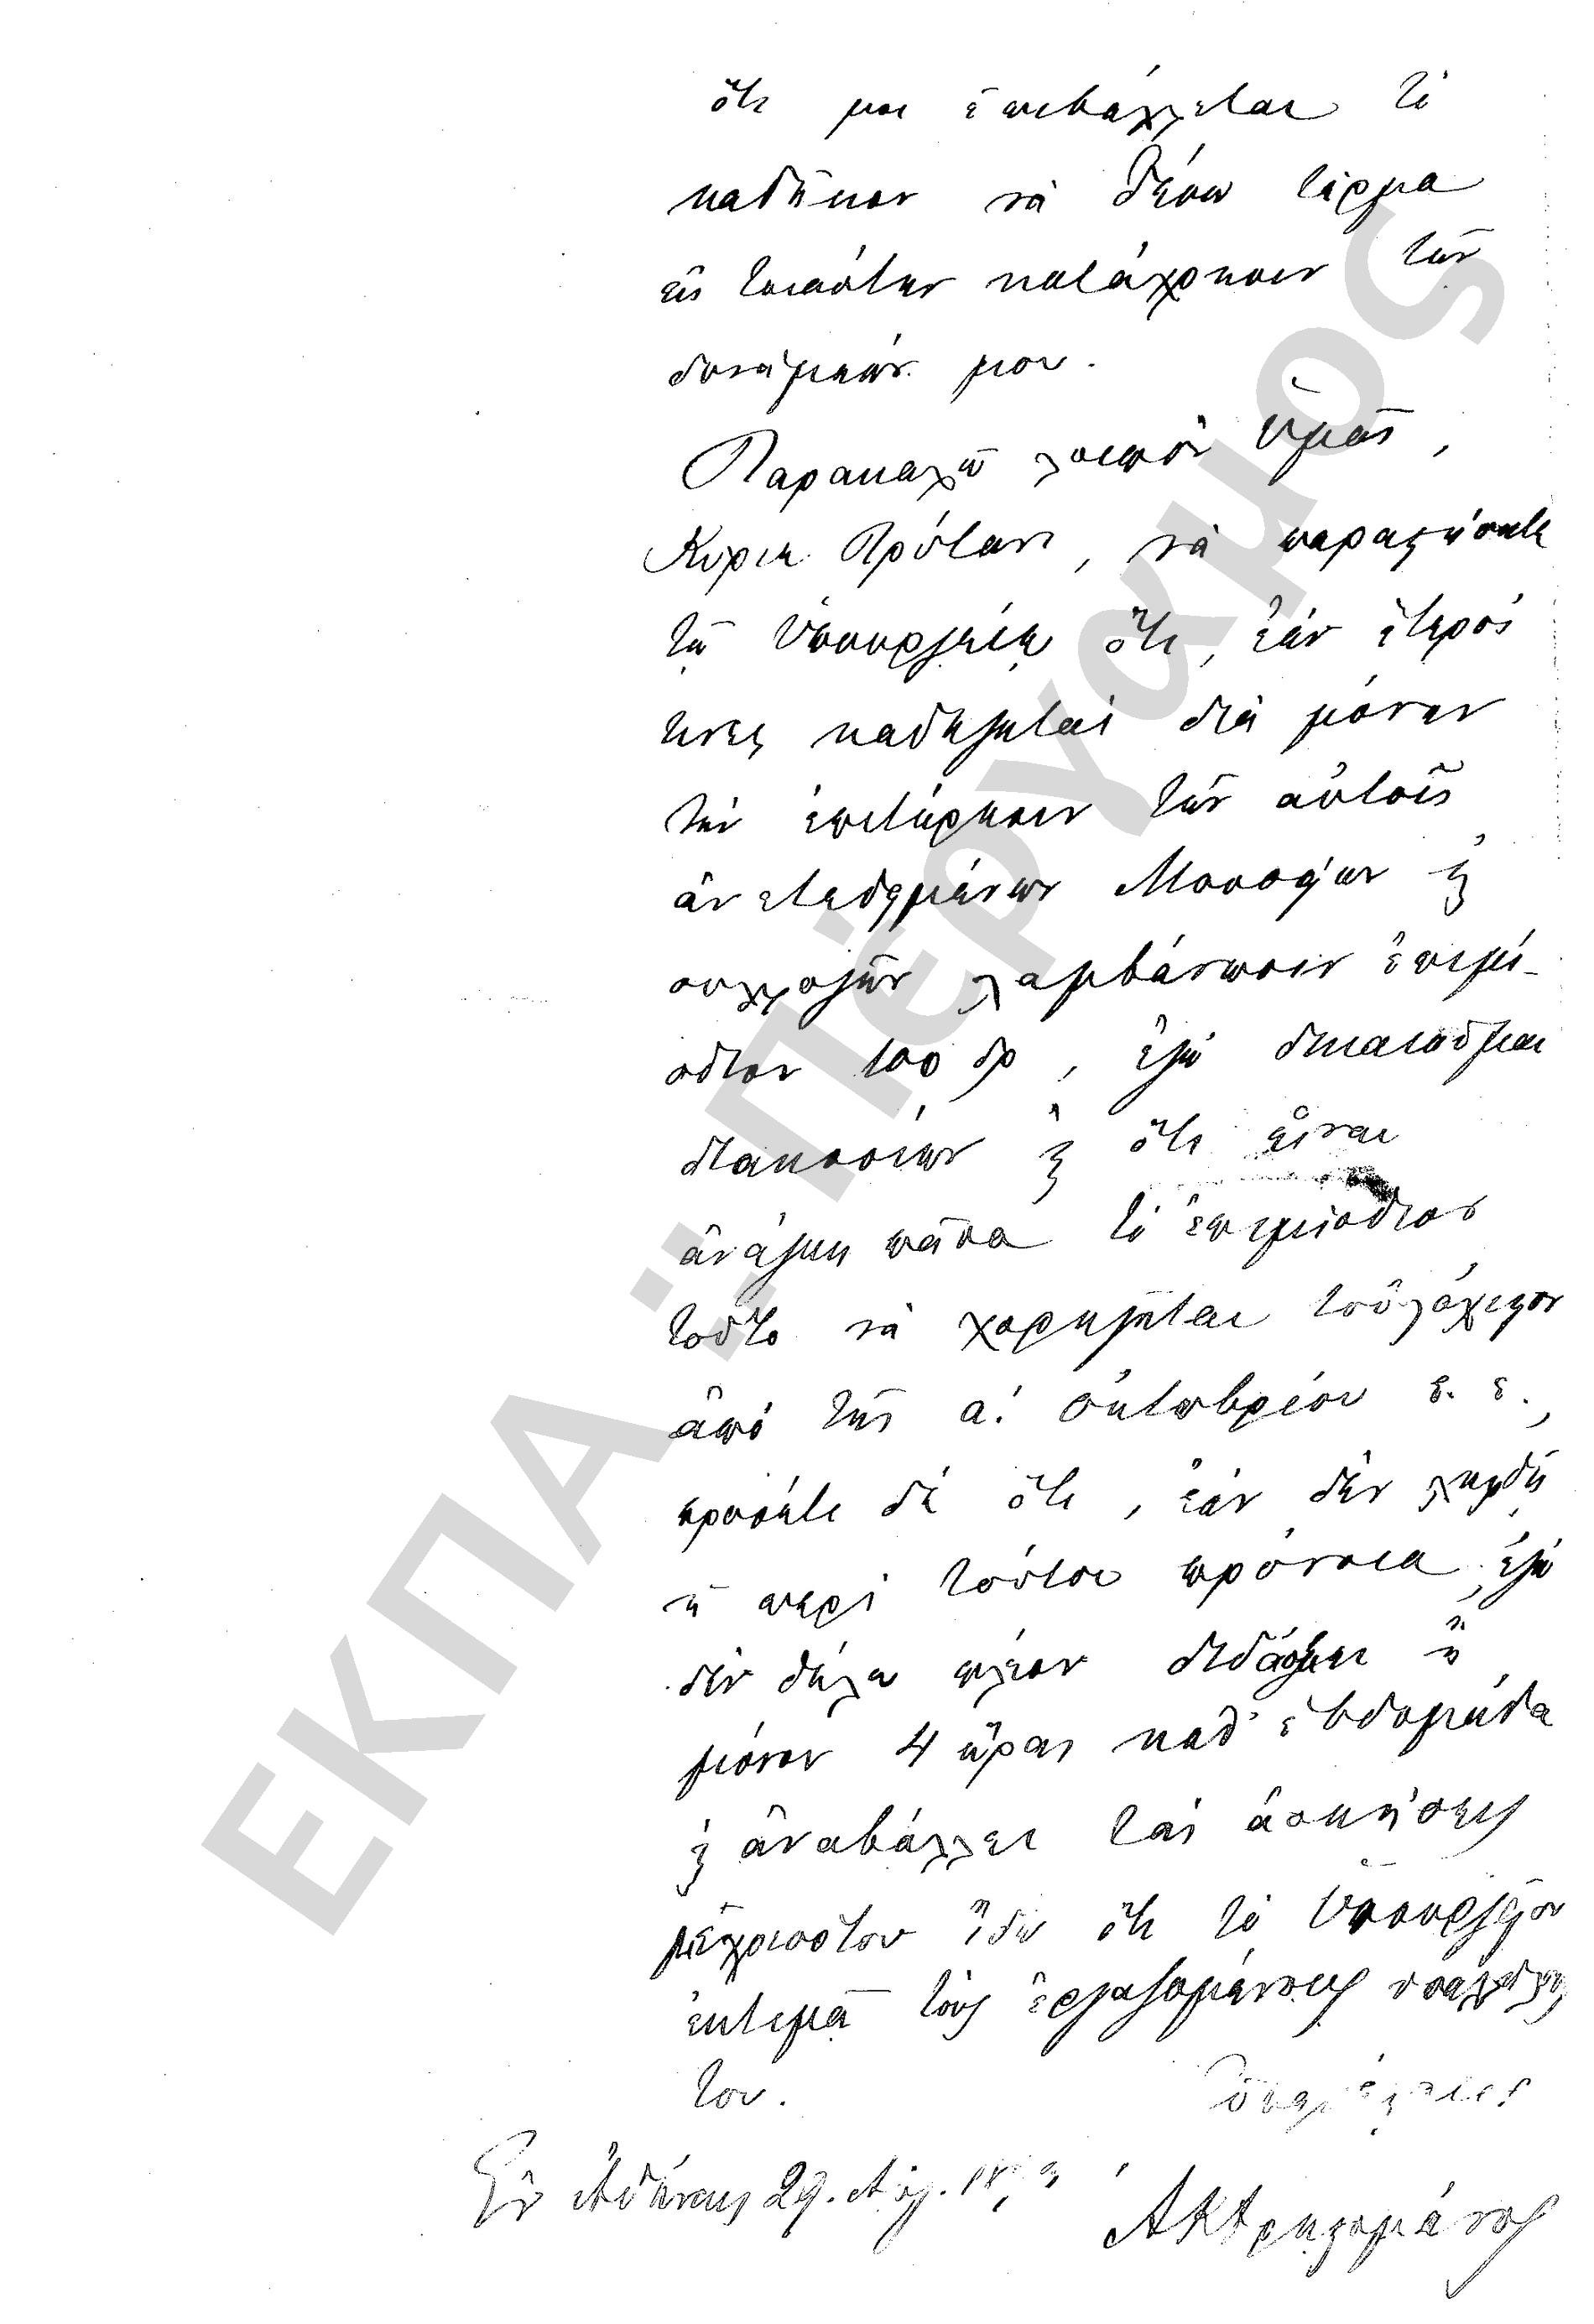 ὅτι μοι ἐπιβάλλεται τὸ
καθῆκον νὰ θέσω τέρμα
εἰς τοιαύτην κατάχρησιν τῶν
δυνάμεών μου.
Παρακαλῶ λοιπὸν Ὑμᾶς,
Κύριε Πρύτανι, νὰ παραστήσητε
τῷ Ὑπουργείῳ ὅτι, ἐὰν ἕτεροί
τινες καθηγηταὶ διὰ μόνην
τὴν ἐπιτήρησιν τῶν αὐτοῖς
ἀνατεθειμένων Μουσείων ϗ
συλλογῶν λαμβάνωσιν ἐπιμί-
σθιον 100 δρ, ἐγὼ δικαιοῦμαι
διακοσίων ϗ ὅτι εἶναι
ἀνάγκη πᾶσα τὸ ἐπιμίσθιον
τοῦτο νὰ χορηγῆται τοὐλάχιστον
ἀπὸ τῆς α! Ὀκτωβρίου ἐ. ἐ.,
προσέτι δὲ ὅτι, ἐὰν δὲν ληφθῇ
ἡ περὶ τούτου πρόνοια, ἐγὼ
δὲν θέλω πλέον διδάξει ἢ
μόνον 4 ὥρας καθ' ἑβδομάδα
ϗ ἀναβάλλει τὰς ἀσκήσεις
μέχρισότου ἴδω ὅτι τὸ Ὑπουργεῖον
ἐκτιμᾷ τοὺς ἐργαζομένους ὑπαλλήλους
του.
Ἐν Ἀθήναις 29. Αὐγ. ΑΚΧρηστομάνος